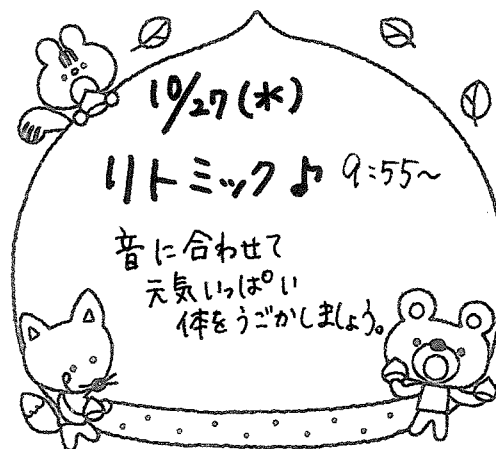 10/27(水)
リトミック♪ 9:55~
音に合わせて
元気いっぱい
体をうごかしましょう。